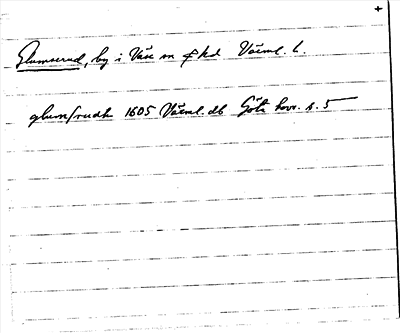 Glumserud, by i Väse sn o hd Värml. l.
glumsrudh 1605 Värml. db Göta hovr. s. 5